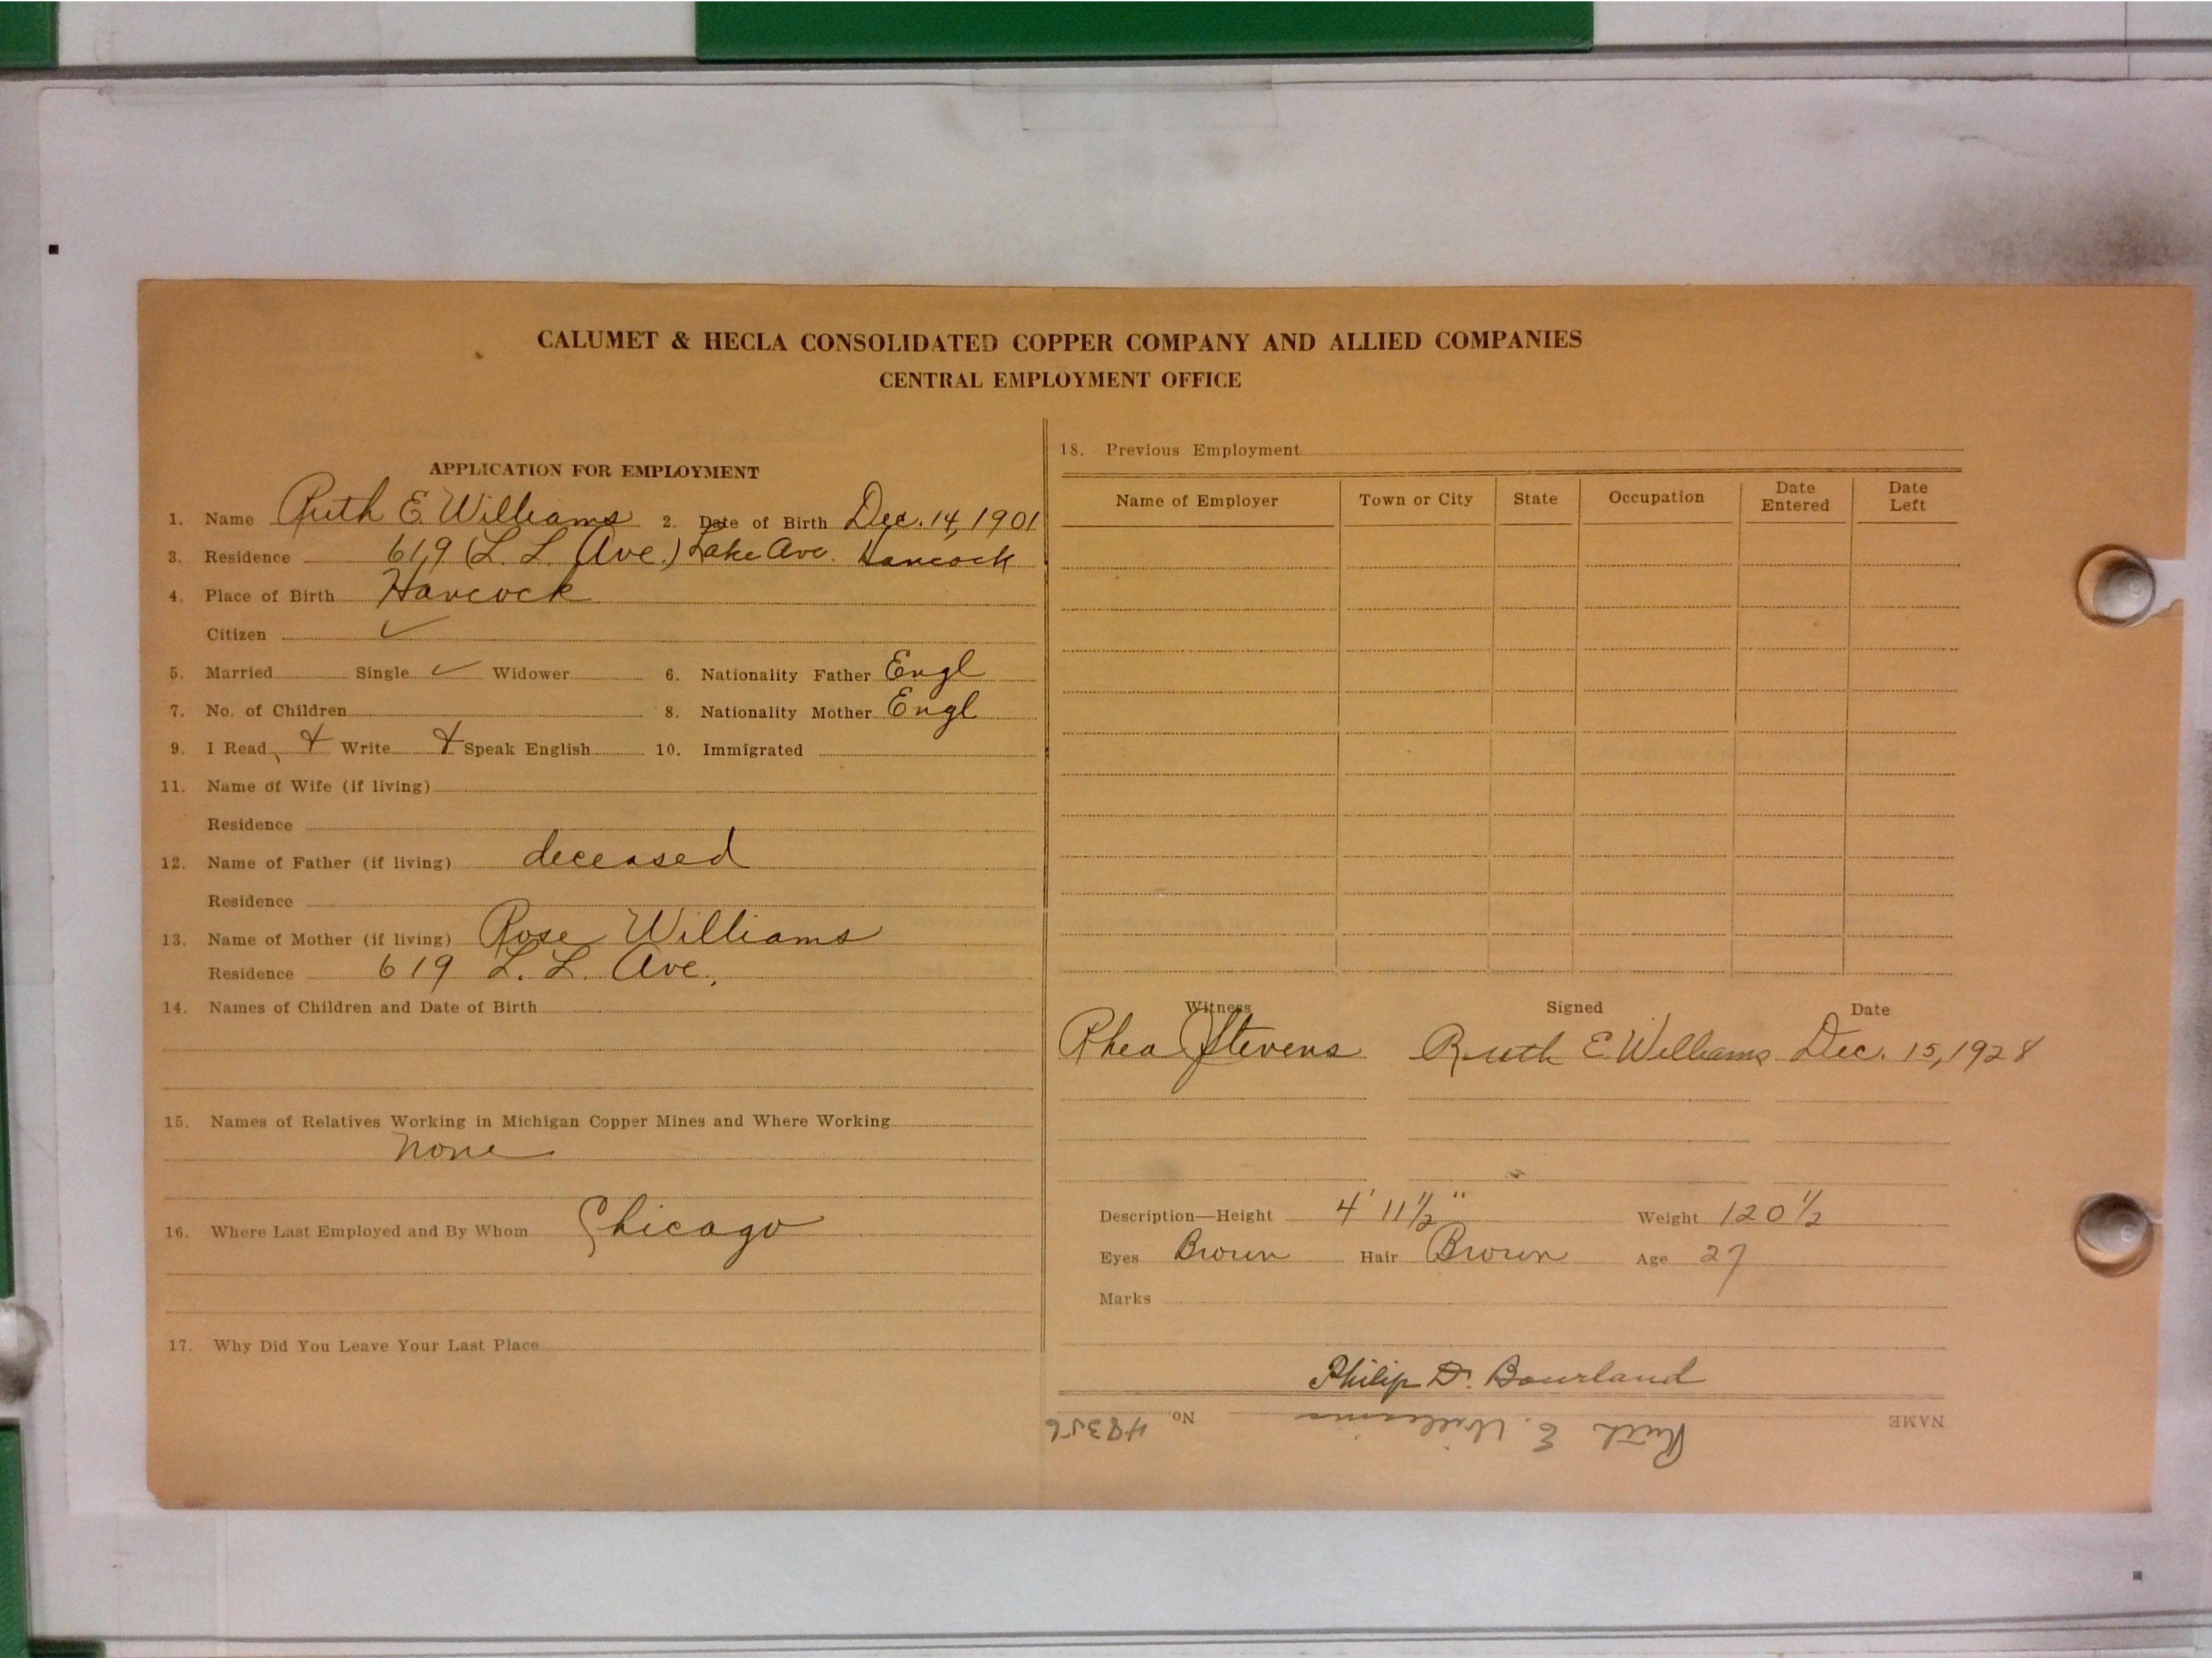 CALUMET & HECLA CONSOLIDATED COPPER COMPANY AND ALLIED COMPANIES
CENTRAL EMPLOYMENT OFFICE
APPLICATION FOR EMPLOYMENT
1. Name Ruth E. Williams 2. Date of Birth Dec. 14, 1901
3. Residence 619 (L. L. Ave.) Lake Ave. Hancock
4. Place of Birth Hancock
Citizen ✓
5. Married Single ✓ Widower 6. Nationality Father Engl
7. No. of Children 8. Nationality Mother Engl
9. I Read, + Write + Speak English 10. Immigrated
11. Name of Wife (if living)
Residence
12. Name of Father (if living) deceased
Residence
13. Name of Mother (if living) Rose Williams
Residence 619 L. L. Ave.
14. Names of Children and Date of Birth
15. Names of Relatives Working in Michigan Copper Mines and Where Working
none
16. Where Last Employed and By Whom Chicago
17. Why Did You Leave Your Last Place
18. Previous Employment
Name of Employer Town or City State Occupation Date Entered Date Left
Witness Signed Date
Rhea Stevens Ruth E. Williams Dec. 15, 1928
Description—Height 4' 11½" Weight 120½
Eyes Brown Hair Brown Age 27
Marks
Philip D. Bourland
NAME Ruth E. Williams No 48356